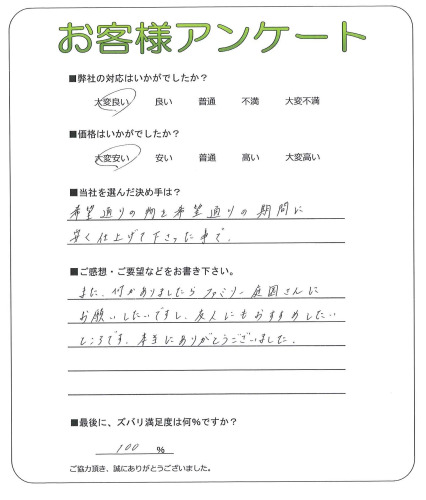 お客様アンケート
■弊社の対応はいかがでしたか?
大変良い 良い 普通 不満 大変不満
■価格はいかがでしたか?
大変安い 安い 普通 高い 大変高い
■当社を選んだ決め手は?
希望通りの物を希望通りの期間に
安く仕上げて下さった事で。
■ご感想・ご要望などをお書き下さい。
また、何かありましたらファミリー庭園さんに
お願いしたいですし、友人にもおすすめしたい
ところです。本当にありがとうございました。
■最後に、ズバリ満足度は何%ですか?
100 %
ご協力頂き、誠にありがとうございました。